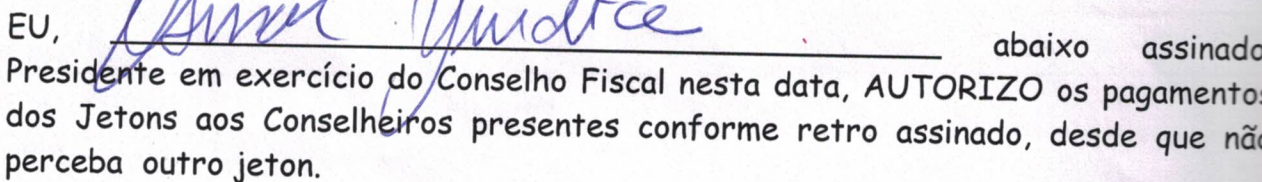 EU, abaixo assinado
Presidente em exercício do Conselho Fiscal nesta data, AUTORIZO os pagamentos
dos Jetons aos Conselheiros presentes conforme retro assinado, desde que não
perceba outro jeton.